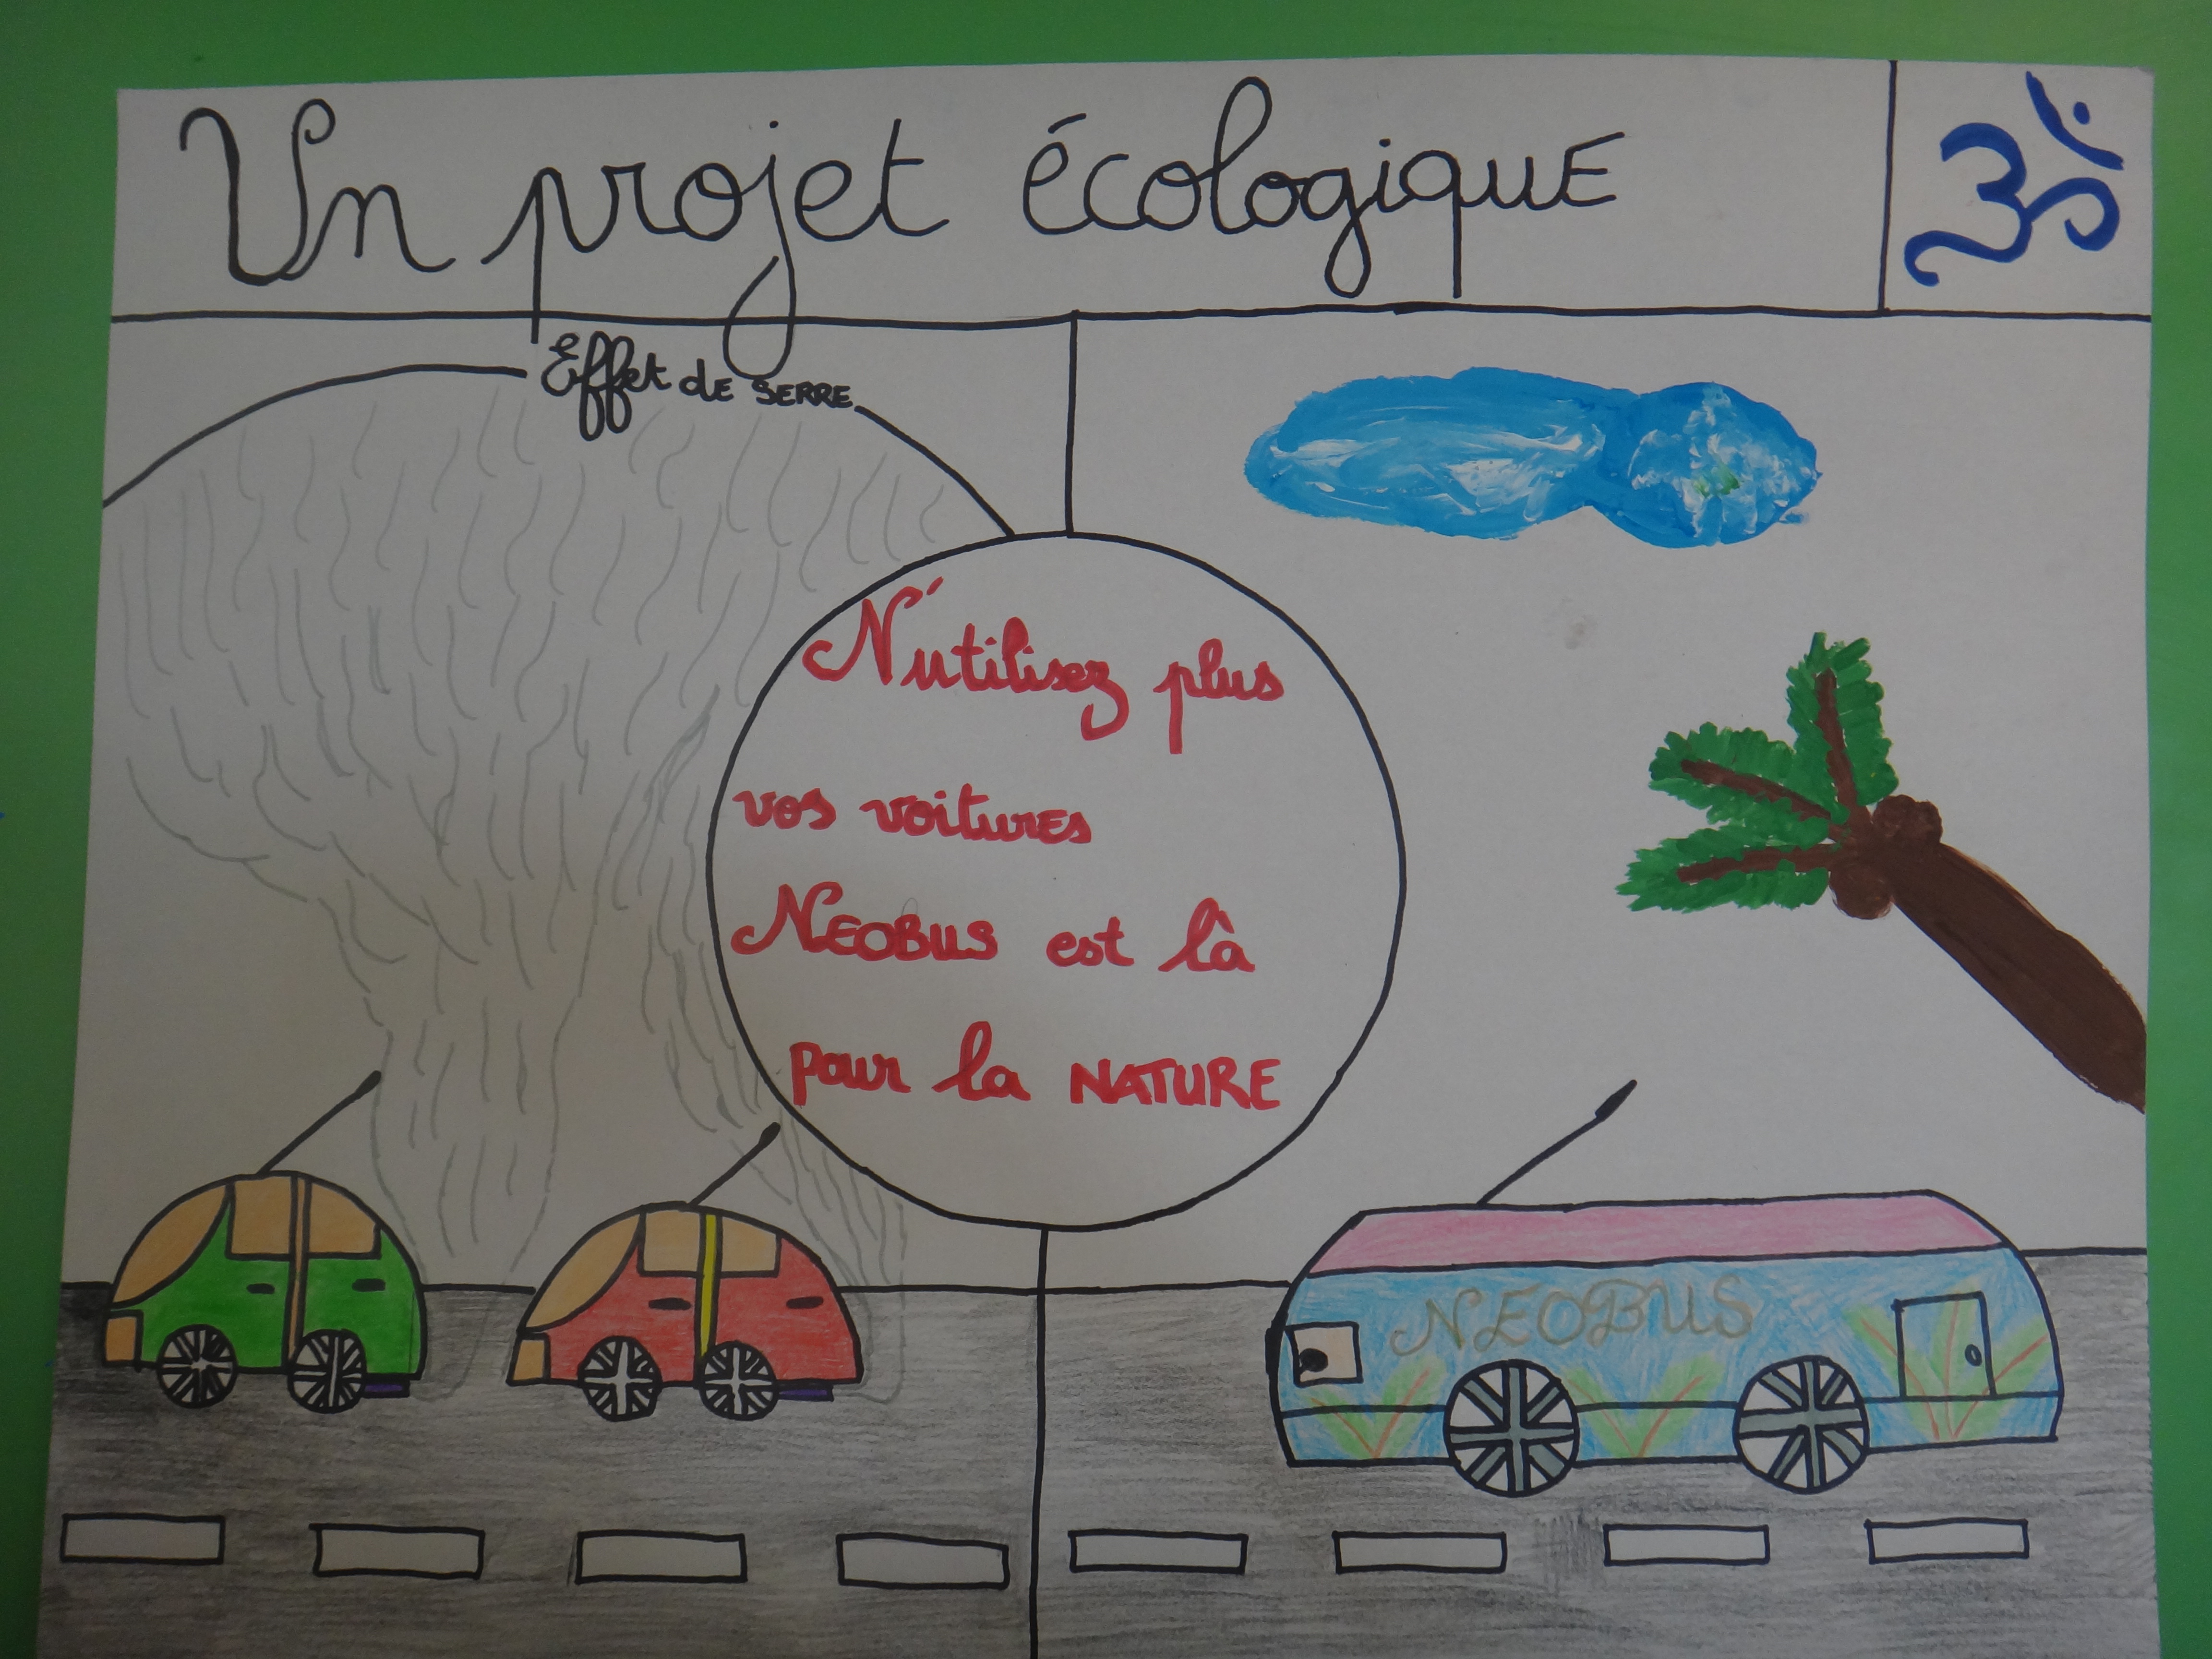 Un projet écologique
ॐ
Effet de serre
N'utilisez plus
vos voitures
NEOBUS est là
pour la NATURE
NEOBUS